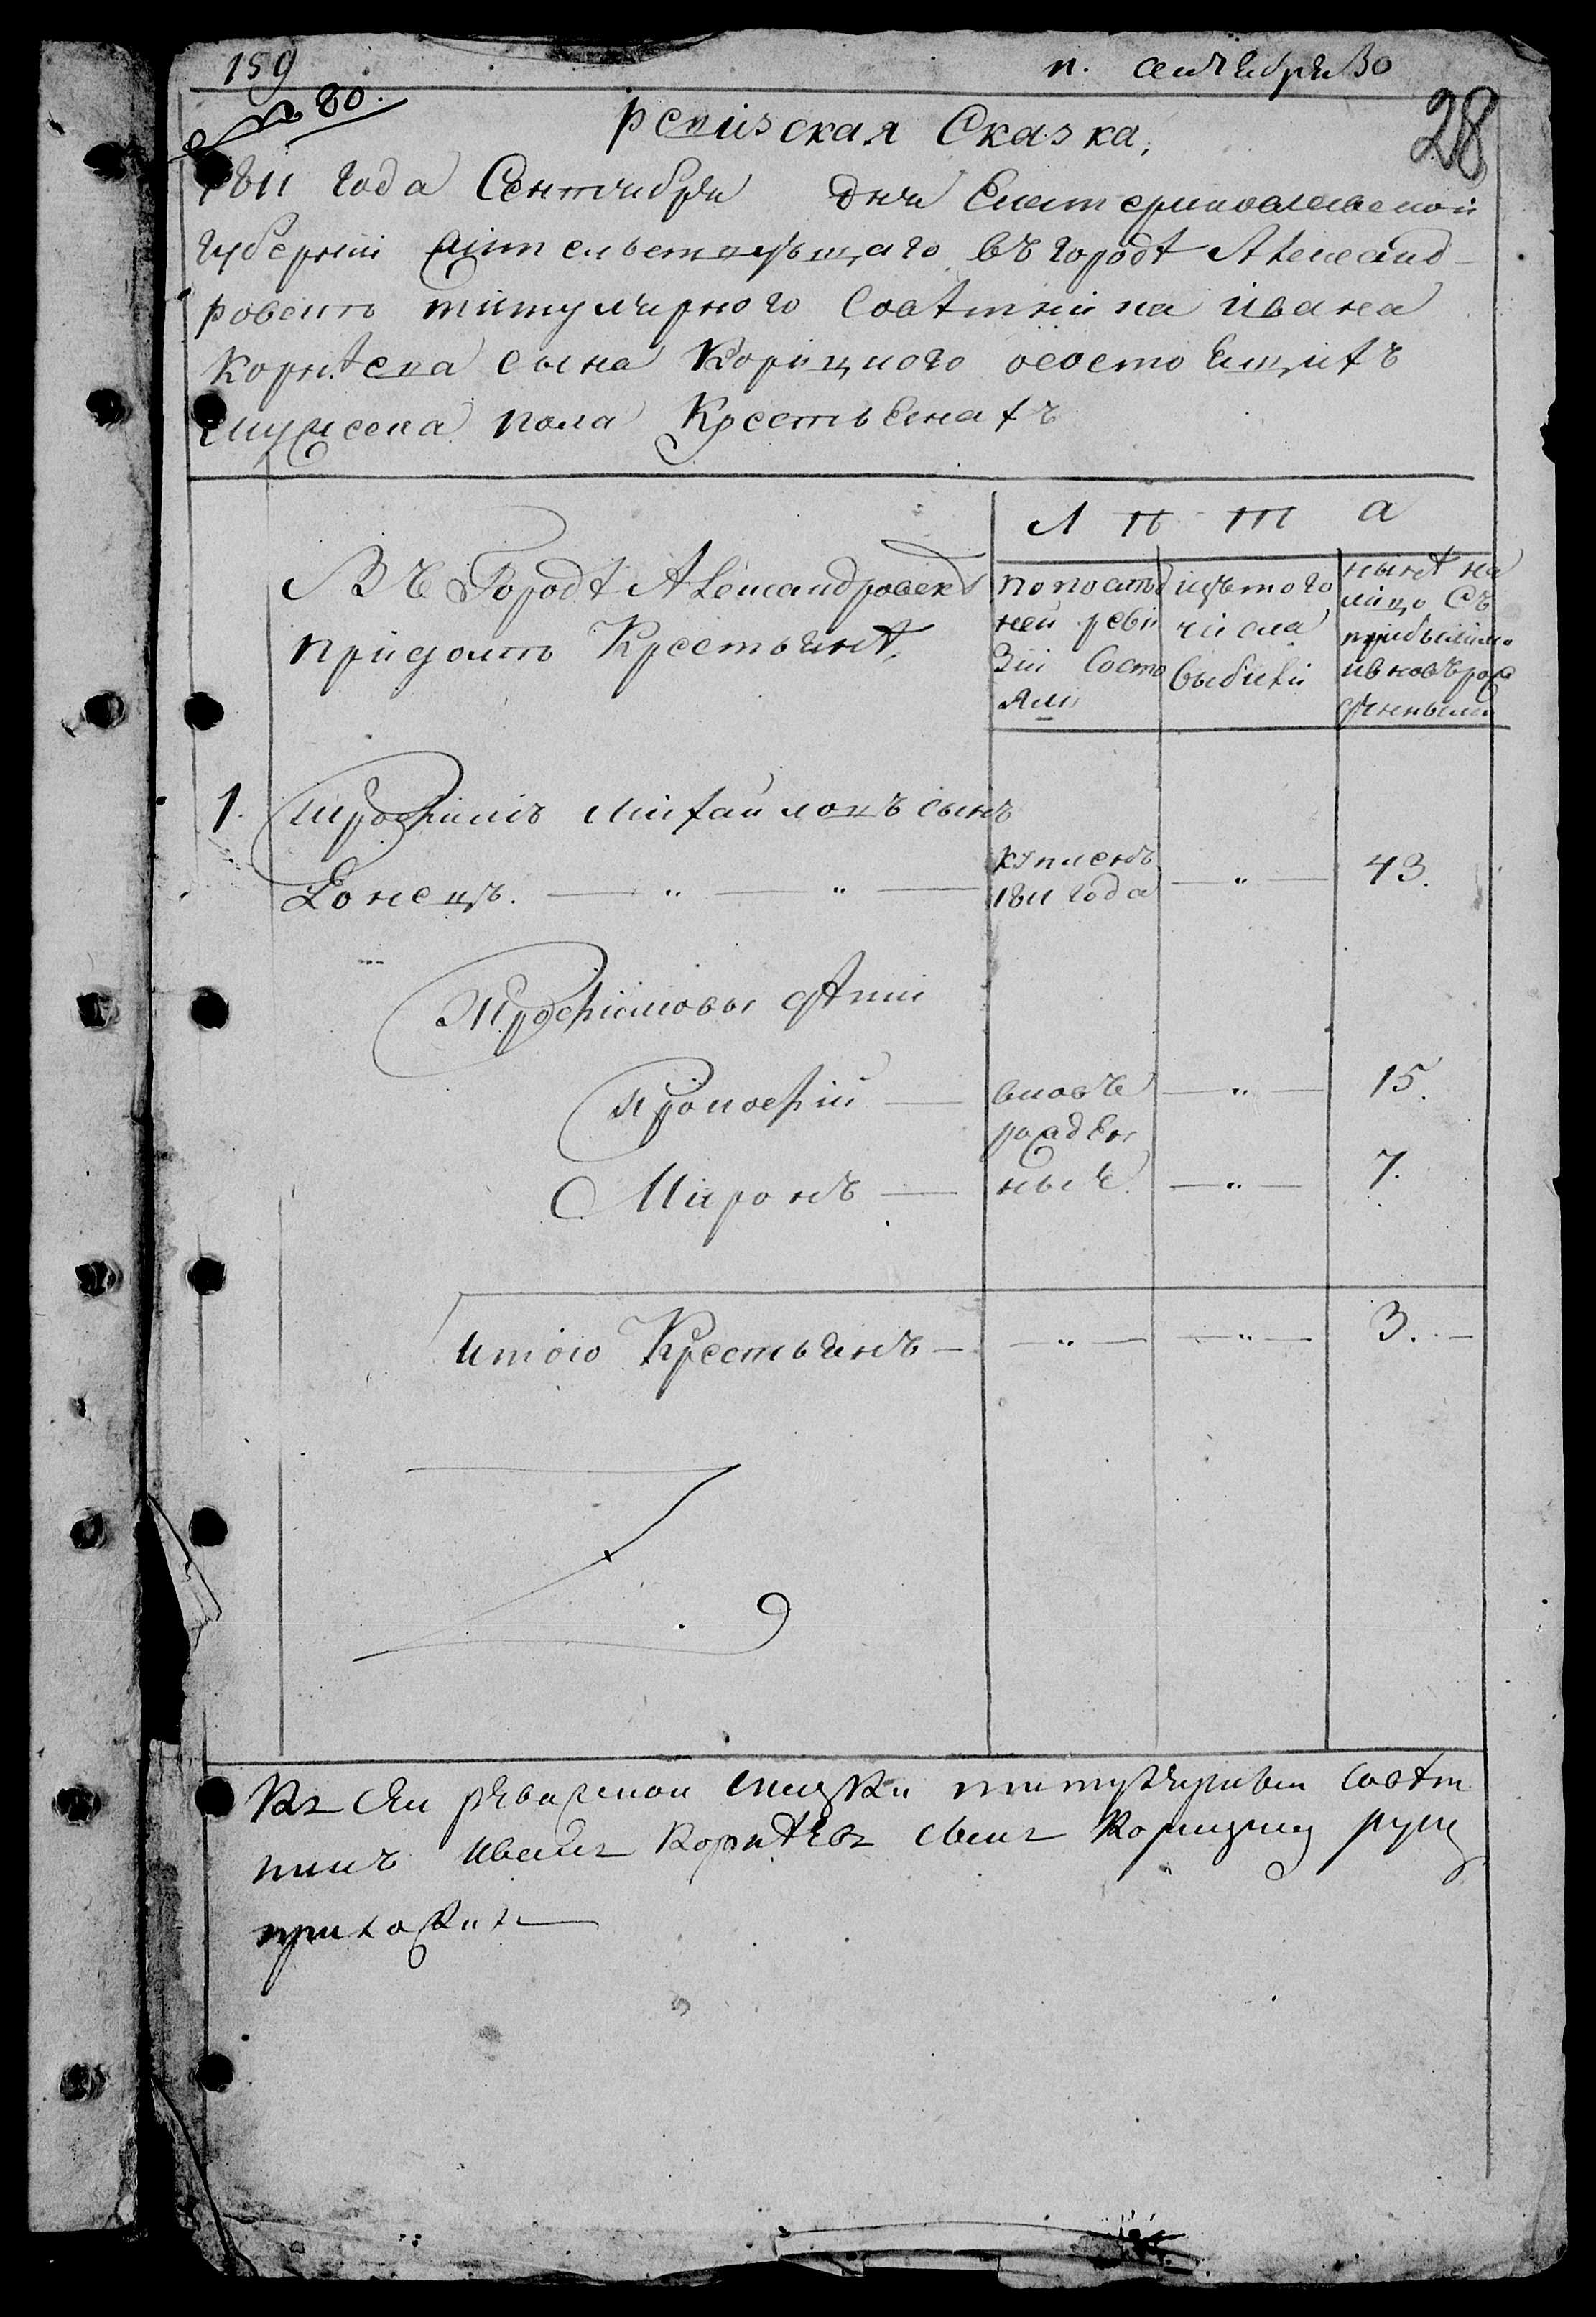 159
п. сентября 30
№ 80.
28
ревизская Сказка,
1811 года Сентября дня Екатеринославской
губернии жительствующаго въ городѣ Александ-
ровскѣ титулярного Совѣтника ивана
корнѣева сына Корицкого осостоящихъ
мужеска пола Крестьянахъ
Въ Городѣ Александровскѣ
придомѣ Крестьянѣ
Лѣта
попослѣд
ней реви
зіи состо
яли
изътого
числа
выбыли
нынѣ на
лицо Съ
прибылыми
ивновърож
денными
1. Трофимъ михайловъ сынъ
Донецъ.
купленъ
1811 года
43.
Трофимовы дѣти
Прокофій
вновь
15.
рожден
Миронъ
ные
7.
итого Крестьянъ
3.
Къ сей ревизской сказки титулярный совѣт
никъ иванъ корнѣевъ сынъ Корицкий руку
приложилъ